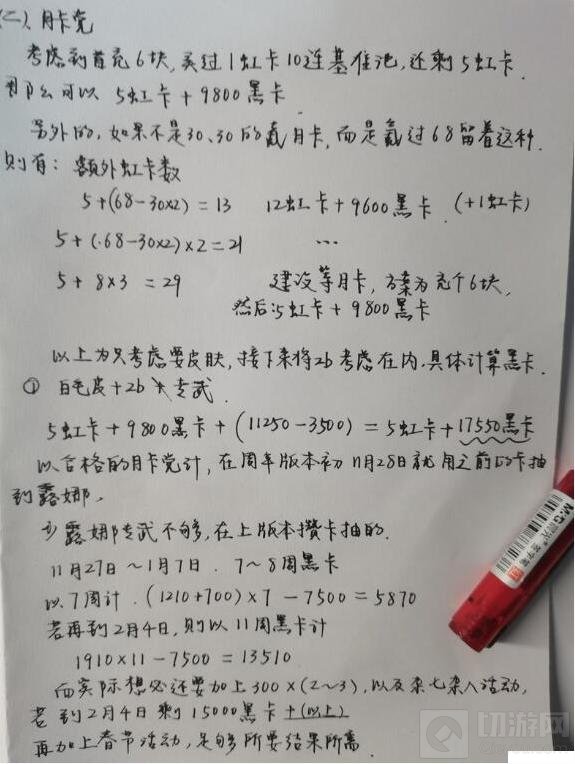 (二)、月卡党
考虑到首充6块,买过1虹卡10连基准池,还剩5虹卡.
那么可以 5虹卡+9800黑卡
另外的,如果不是30、30的氪月卡,而是氪过68留着这种.
则有: 额外虹卡数
5+(68-30×2)=13 12虹卡+9600黑卡 (+1虹卡)
5+(68-30×2)×2=21 ...
5+8×3=29 建议等月卡,方案为充个6块,
然后:5虹卡+9800黑卡
以上为只考虑要皮肤,接下来将2b考虑在内,具体计算黑卡.
① 白毛皮+2b 专武.
5虹卡+9800黑卡+(11250-3500)=5虹卡+17550黑卡
以合格的月卡党计,在周年版本初11月28日就用之前的卡抽
到露娜,
露娜专武不够,在上版本攒卡抽的.
11月27日~1月7日. 7~8周黑卡
以7周计.(1210+700)×7-7500=5870
若再到2月4日,则以11周黑卡计
1910×11-7500=13510
而实际想必还要加上300×(2~3),以及杂七杂八活动,
若到2月4日剩15000黑卡+(以上)
再加上春节活动,足够所要结果所需.
M&G
切游网